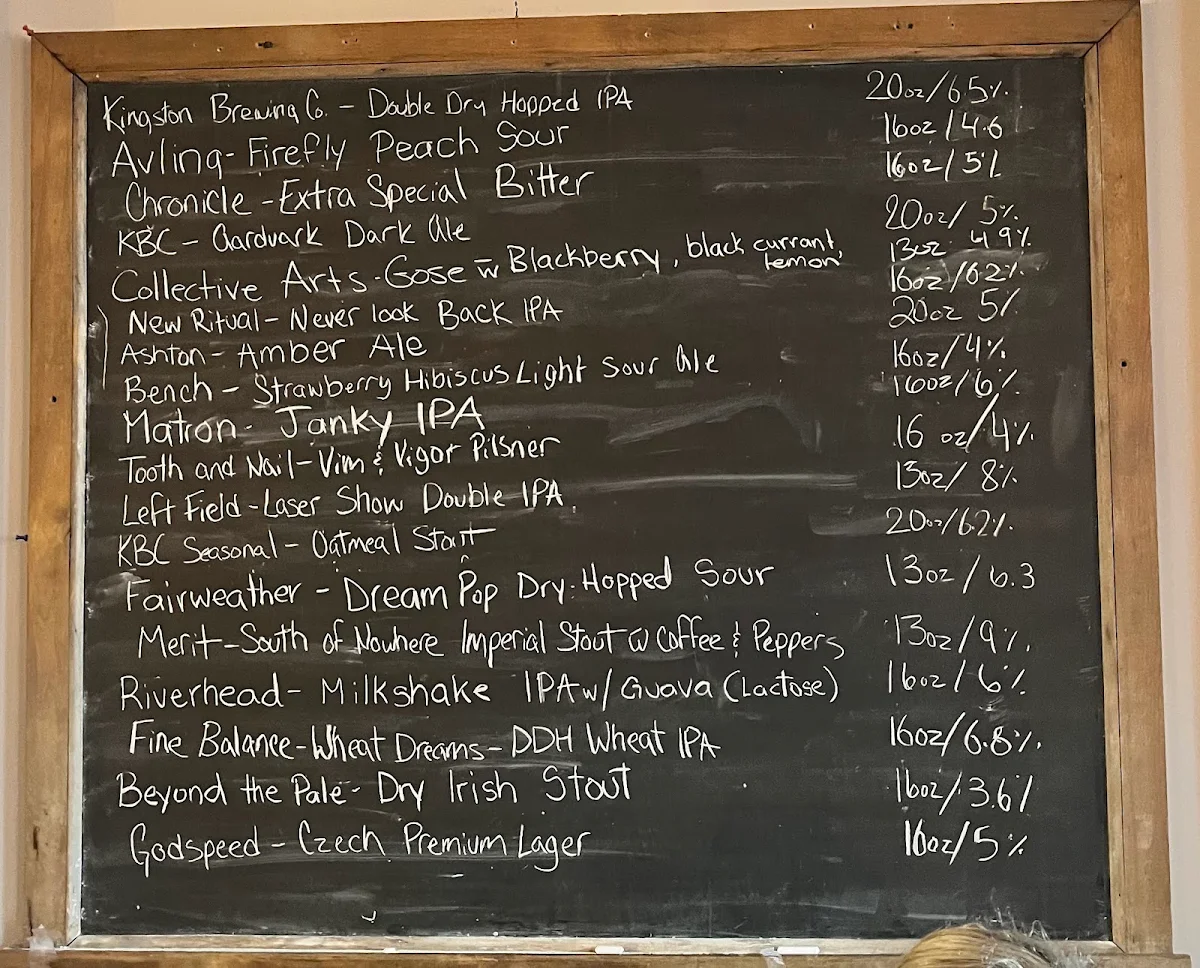 Kingston Brewing Co. - Double Dry Hopped IPA 20oz/6.5%
Avling - Firefly Peach Sour 16oz/4.6
Chronicle - Extra Special Bitter 16oz/5%
KBC - Aardvark Dark Ale 20oz/5%
Collective Arts - Gose w Blackberry, black currant, lemon 13oz 4.9%
New Ritual - Never look Back IPA 16oz/6.2%
Ashton - Amber Ale 20oz 5%
Bench - Strawberry Hibiscus Light Sour Ale 16oz/4%
Matron - Janky IPA 16oz/6%
Tooth and Nail - Vim & Vigor Pilsner 16 oz/4%
Left Field - Laser Show Double IPA 13oz/8%
KBC Seasonal - Oatmeal Stout 20oz/6.2%
Fairweather - Dream Pop Dry-Hopped Sour 13oz/6.3
Merit - South of Nowhere Imperial Stout w Coffee & Peppers 13oz/9%
Riverhead - Milkshake IPA w/ Guava (Lactose) 16oz/6%
Fine Balance - Wheat Dreams - DDH Wheat IPA 16oz/6.8%
Beyond the Pale - Dry Irish Stout 16oz/3.6%
Godspeed - Czech Premium Lager 16oz/5%